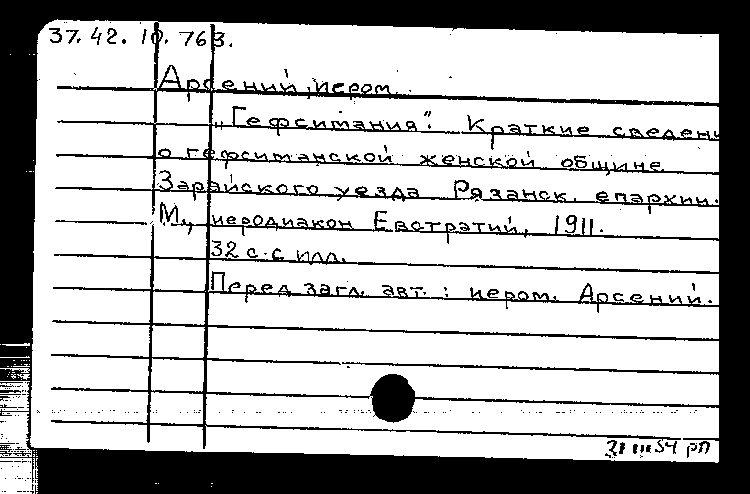 37. 42. 10. 763.
Арсений, иером.
„Гефсимания". Краткие сведен
о гефсиманской женской общине
Зарайского уезда Рязанск. епархии.
М., иеродиакон Евстратий, 1911.
32 с. с илл.
Перед загл. авт. : иером. Арсений.
31 III 54 рп